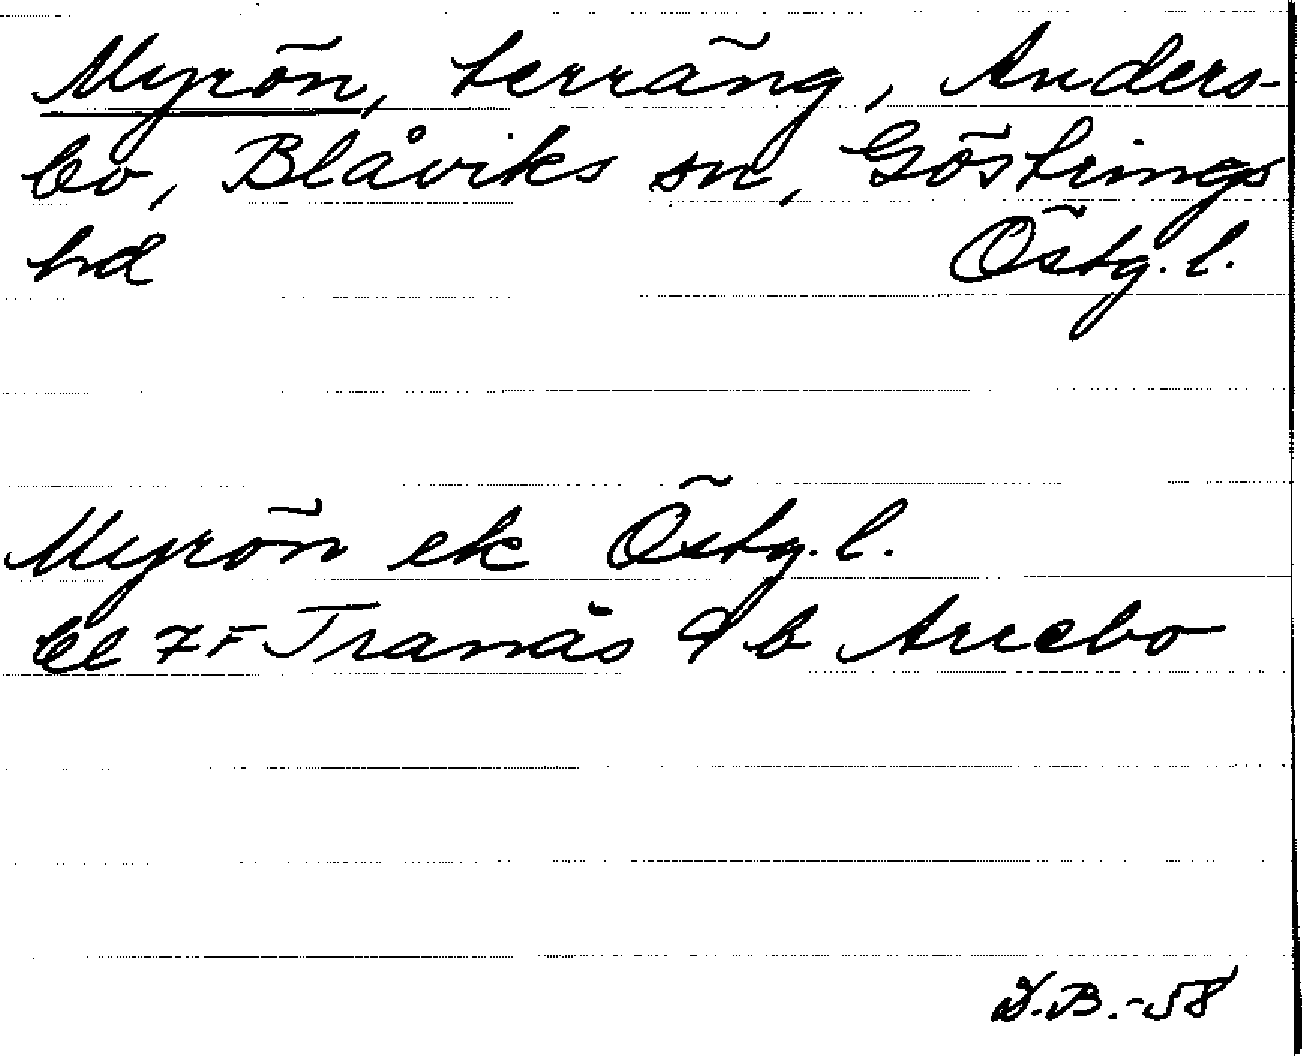 Myrön, terräng, Anders-
bo, Blåviks sn, Göstrings
hd Östg. l.
Myrön ek Östg. l.
bl 7F Tranås 9 b Arnebo
D.B.-58